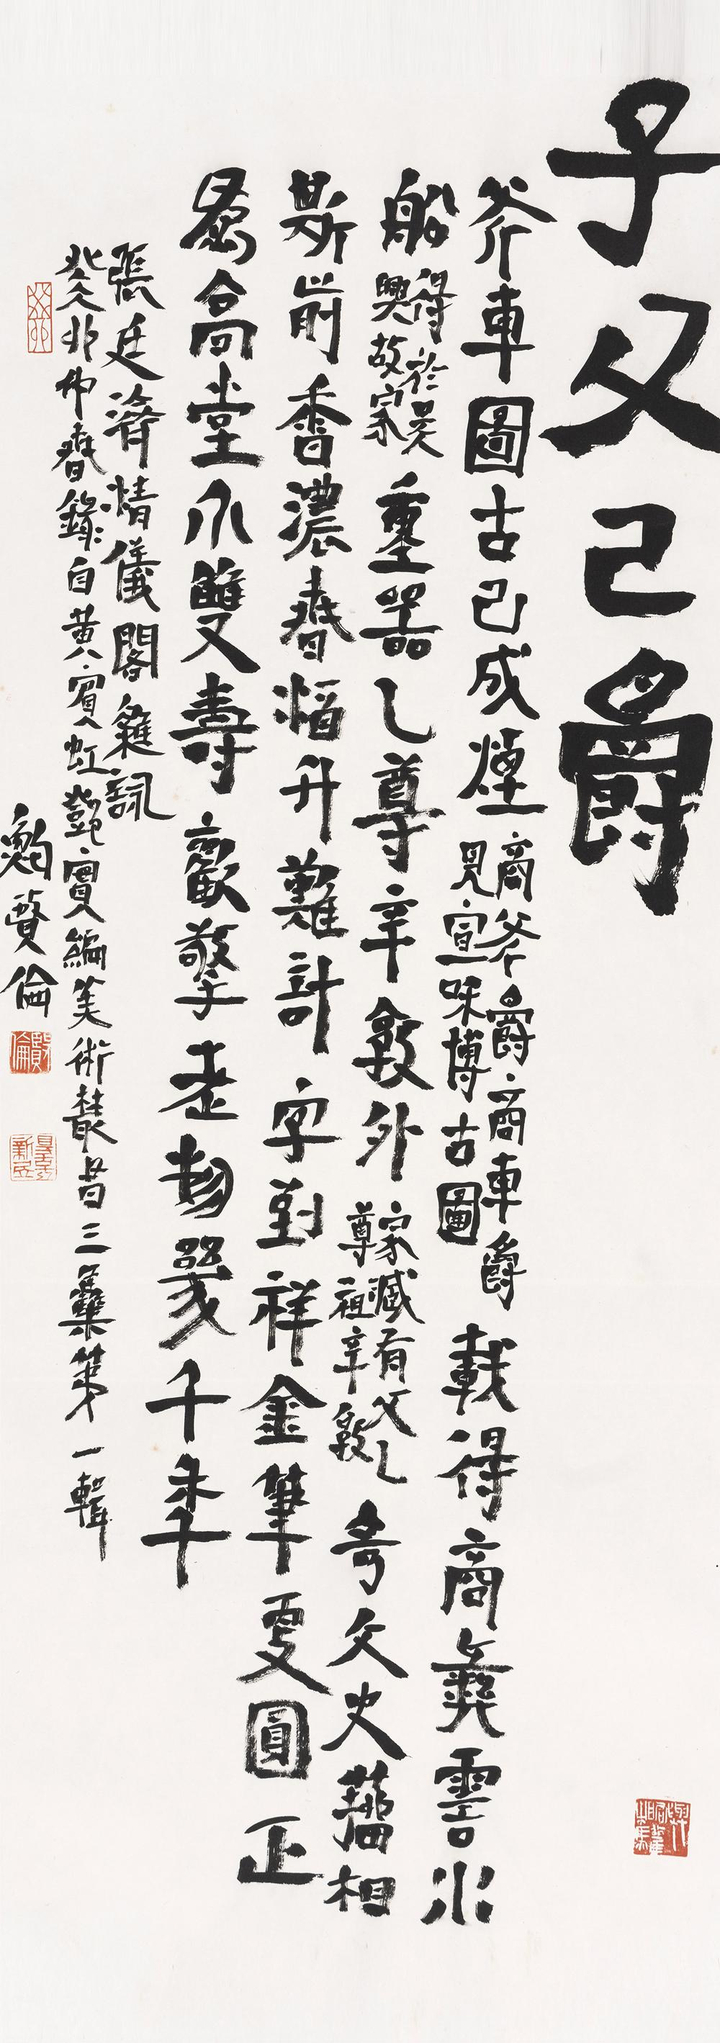 子父己爵
斧車圖古已成煙
商斧爵商車爵
見宣和博古圖
載得商彝雪水
船
得於吴
興故家
重器乙尊辛敦外
家藏有父乙
尊祖辛敦
奇文史籀相
斯前香濃春熖升難計字對祥金筆更圓正
爲高堂介雙壽歡擎老物千年
張廷濟清儀閣雜詠
癸卯仲春錄自黃賓虹鄧實編美術叢書三集第一輯
賢倫